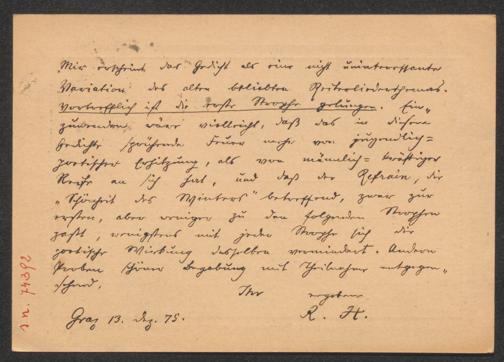 Mir erscheint das Gedicht als eine nicht uninteressante
Variation des alten beliebten Reiterliederthemas.
Vortrefflich ist die erste Strophe gelungen. Ein-
zuwenden wäre vielleicht, daß das in diesem
Gedichte sprühende Feuer mehr von jugendlich=
poetischer Erhitzung, als von männlich=kräftiger
Reife an sich hat, und daß der Refrain, die
"Schönheit des Winters" betreffend, zwar zur
ersten, aber weniger zu den folgenden Strophen
paßt, wenigstens mit jeder Strophe sich die
poetische Wirkung desselben vermindert. Andern
Proben schöner Begabung mit Theilnahme entgegen-
sehend,
Ihr ergebener
R. H.
Graz 13. Dez. 75.
I.N. 74392